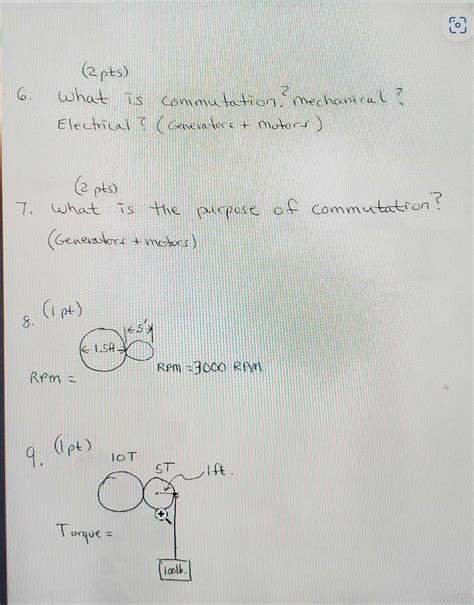 (2 pts)
6. What is commutation? mechanical?
Electrical? (Generators + motors)
(2 pts)
7. What is the purpose of commutation?
(Generators + motors)
8. (1 pt)
.5'
1.5ft
RPM =
RPM = 3000 RPM
9. (1pt)
10T
5T
1ft.
Torque =
100lb.